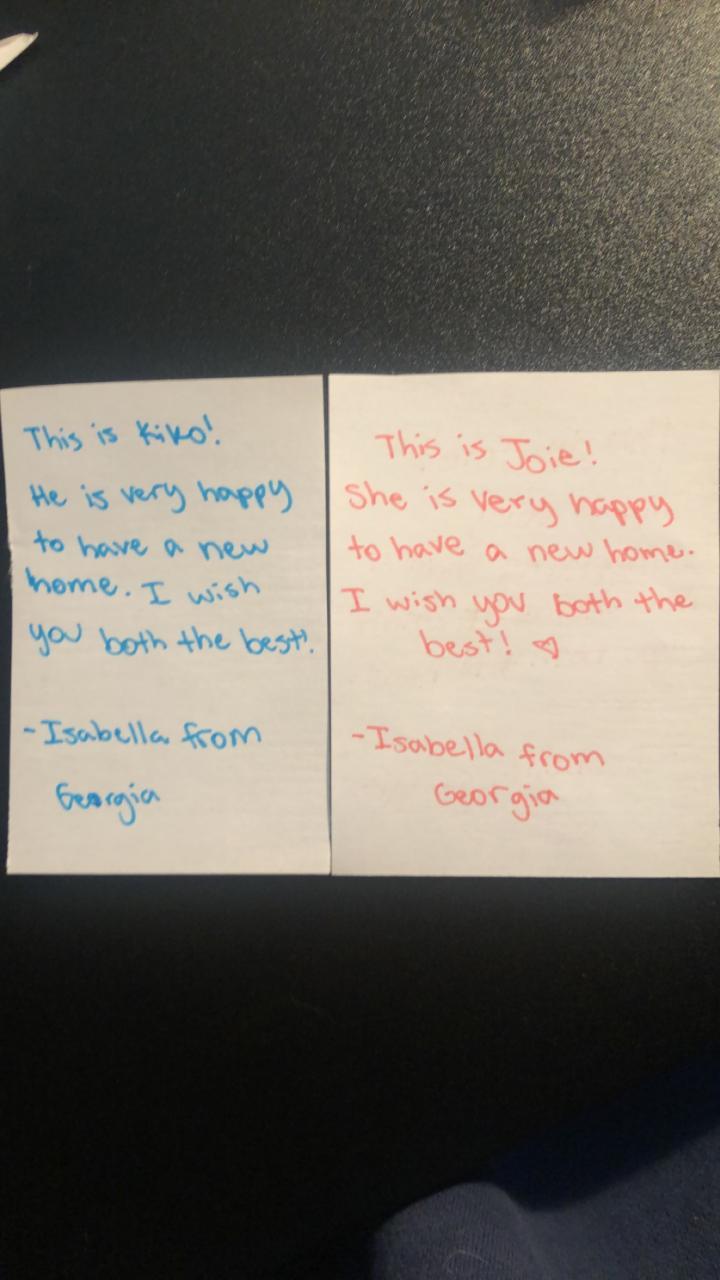 This is Kiko!
He is very happy
to have a new
home. I wish
you both the best!
-Isabella from
Georgia
This is Joie!
She is very happy
to have a new home.
I wish you both the
best! ♡
-Isabella from
Georgia